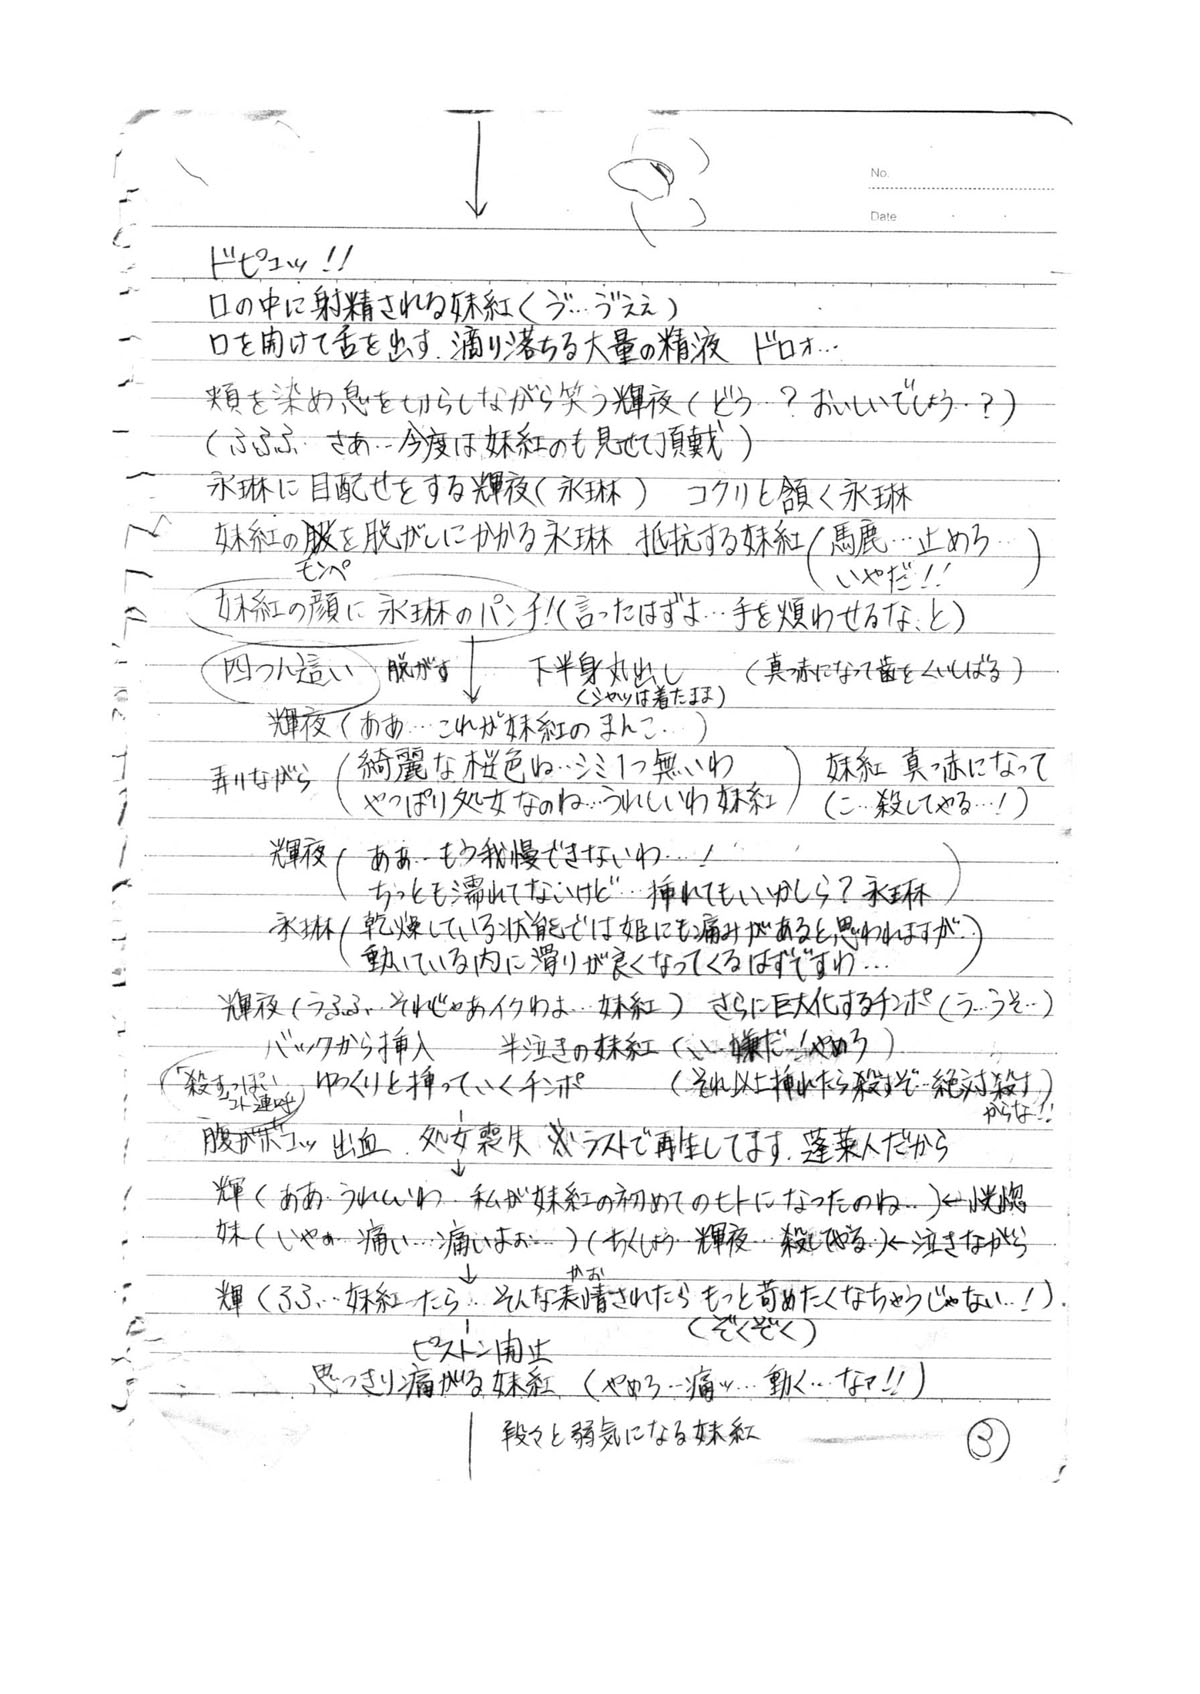 No.
Date
ドピュッ!!
口の中に射精される妹紅(ゔ…ゔえぇ)
口を開けて舌を出す.滴り落ちる大量の精液 ドロォ…
頬を染め息を切らしながら笑う輝夜(どう…?おいしいでしょう…?)
(ふふふ…さあ…今度は妹紅のも見せて頂戴)
永琳に目配せをする輝夜(永琳) コクリと頷く永琳
妹紅の服を脱がしにかかる永琳 抵抗する妹紅(馬鹿…止めろ…
モンペ いやだ!!)
妹紅の顔に永琳のパンチ!(言ったはずよ…手を煩わせるな、と)
四つん這い 脱がす 下半身丸出し (真っ赤になって歯をくいしばる)
(シャツは着たまま)
輝夜(ああ…これが妹紅のまんこ…)
弄りながら (綺麗な桜色ね…シミ1つ無いわ 妹紅 真っ赤になって
やっぱり処女なのね…うれしいわ妹紅) (こ…殺してやる…!)
輝夜(ああ…もう我慢できないわ…!
ちっとも濡れてないけど…挿れてもいいかしら?永琳)
永琳(乾燥している状態では姫にも痛みがあると思われますが…
動いている内に滑りが良くなってくるはずですわ…)
輝夜(うふふ…それじゃあイクわよ…妹紅) さらに巨大化するチンポ(う…うそ…)
バックから挿入 半泣きの妹紅(い…嫌だ!やめろ)
(「殺す」っぽい ゆっくりと挿っていくチンポ (それ以上挿れたら殺すぞ…絶対殺す
コト連呼) からな!!)
腹がボコッ 出血.処女喪失 ※ラストで再生してます.蓬莱人だから
輝(ああ…うれしいわ…私が妹紅の初めてのヒトになったのね…)←恍惚
妹(いやぁ…痛い…痛いよぉ…)(ちくしょう…輝夜…殺してやる…)←泣きながら
かお
輝(ふふ…妹紅ったら…そんな表情されたらもっと苛めたくなちゃうじゃない…!)
(ぞくぞく)
ピストン開始
思っきり痛がる妹紅 (やめろ…痛ッ…動く…なァ!!)
段々と弱気になる妹紅
③